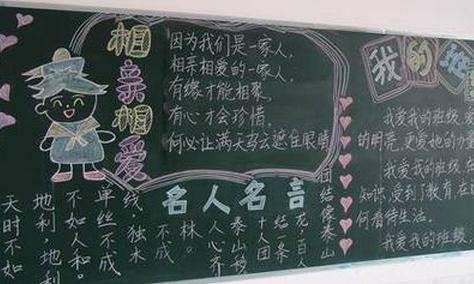 相亲相爱
因为我们是一家人,
相亲相爱的一家人,
有缘才能相聚,
有心才会珍惜,
何必让满天乌云遮住眼睛
名人名言
天时不如
地利,地利
不如人和。
单丝不成
线,独木
不成
林。
人心齐
泰山移
十人团
结条
龙,百人
团结像泰山
我的班
我爱我的班级,
的明亮,更爱她的力量
我爱我的班级
知识,受到了教育,在
何看待生活。
我爱我的班级